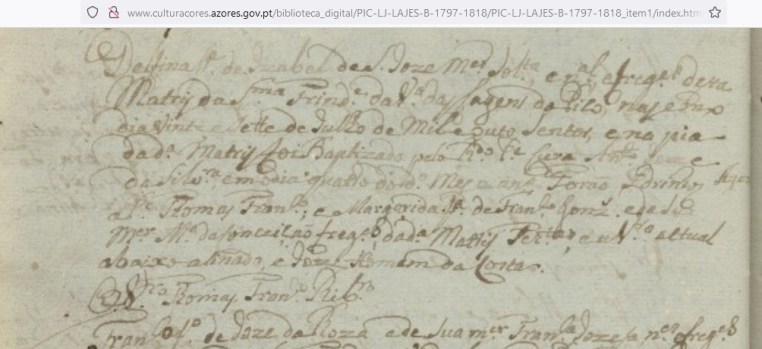 www.culturacores.azores.gov.pt/biblioteca_digital/PIC-LJ-LAJES-B-1797-1818/PIC-LJ-LAJES-B-1797-1818_item1/index.htm
Delfina fª de Izabel de S. Joze Mer Solta e nal e fregª desta
Matriz da Sma Trinde da Va das Lagens do Pico, nasceu
dia vinte e sette de Julho de Mil e outo sentos, e na pia
da dª Matriz foi Baptizada pelo Rdo Cura Anto
da Silvra em dia quatro do Mez e anno Forão Padrinhos
o Pe Thomas Franco, e Margarida fª de Franco Gonz. e de sua
Mer Mª da Conceição fregs da dª Matriz Tes e o Vro actual
abaixo asinado, e Joze Homem da Costa.
O Vro Thomas Franco Ribro
Franco fo de Joze da Roza e de sua mer Franca Jozefa nes e fregs